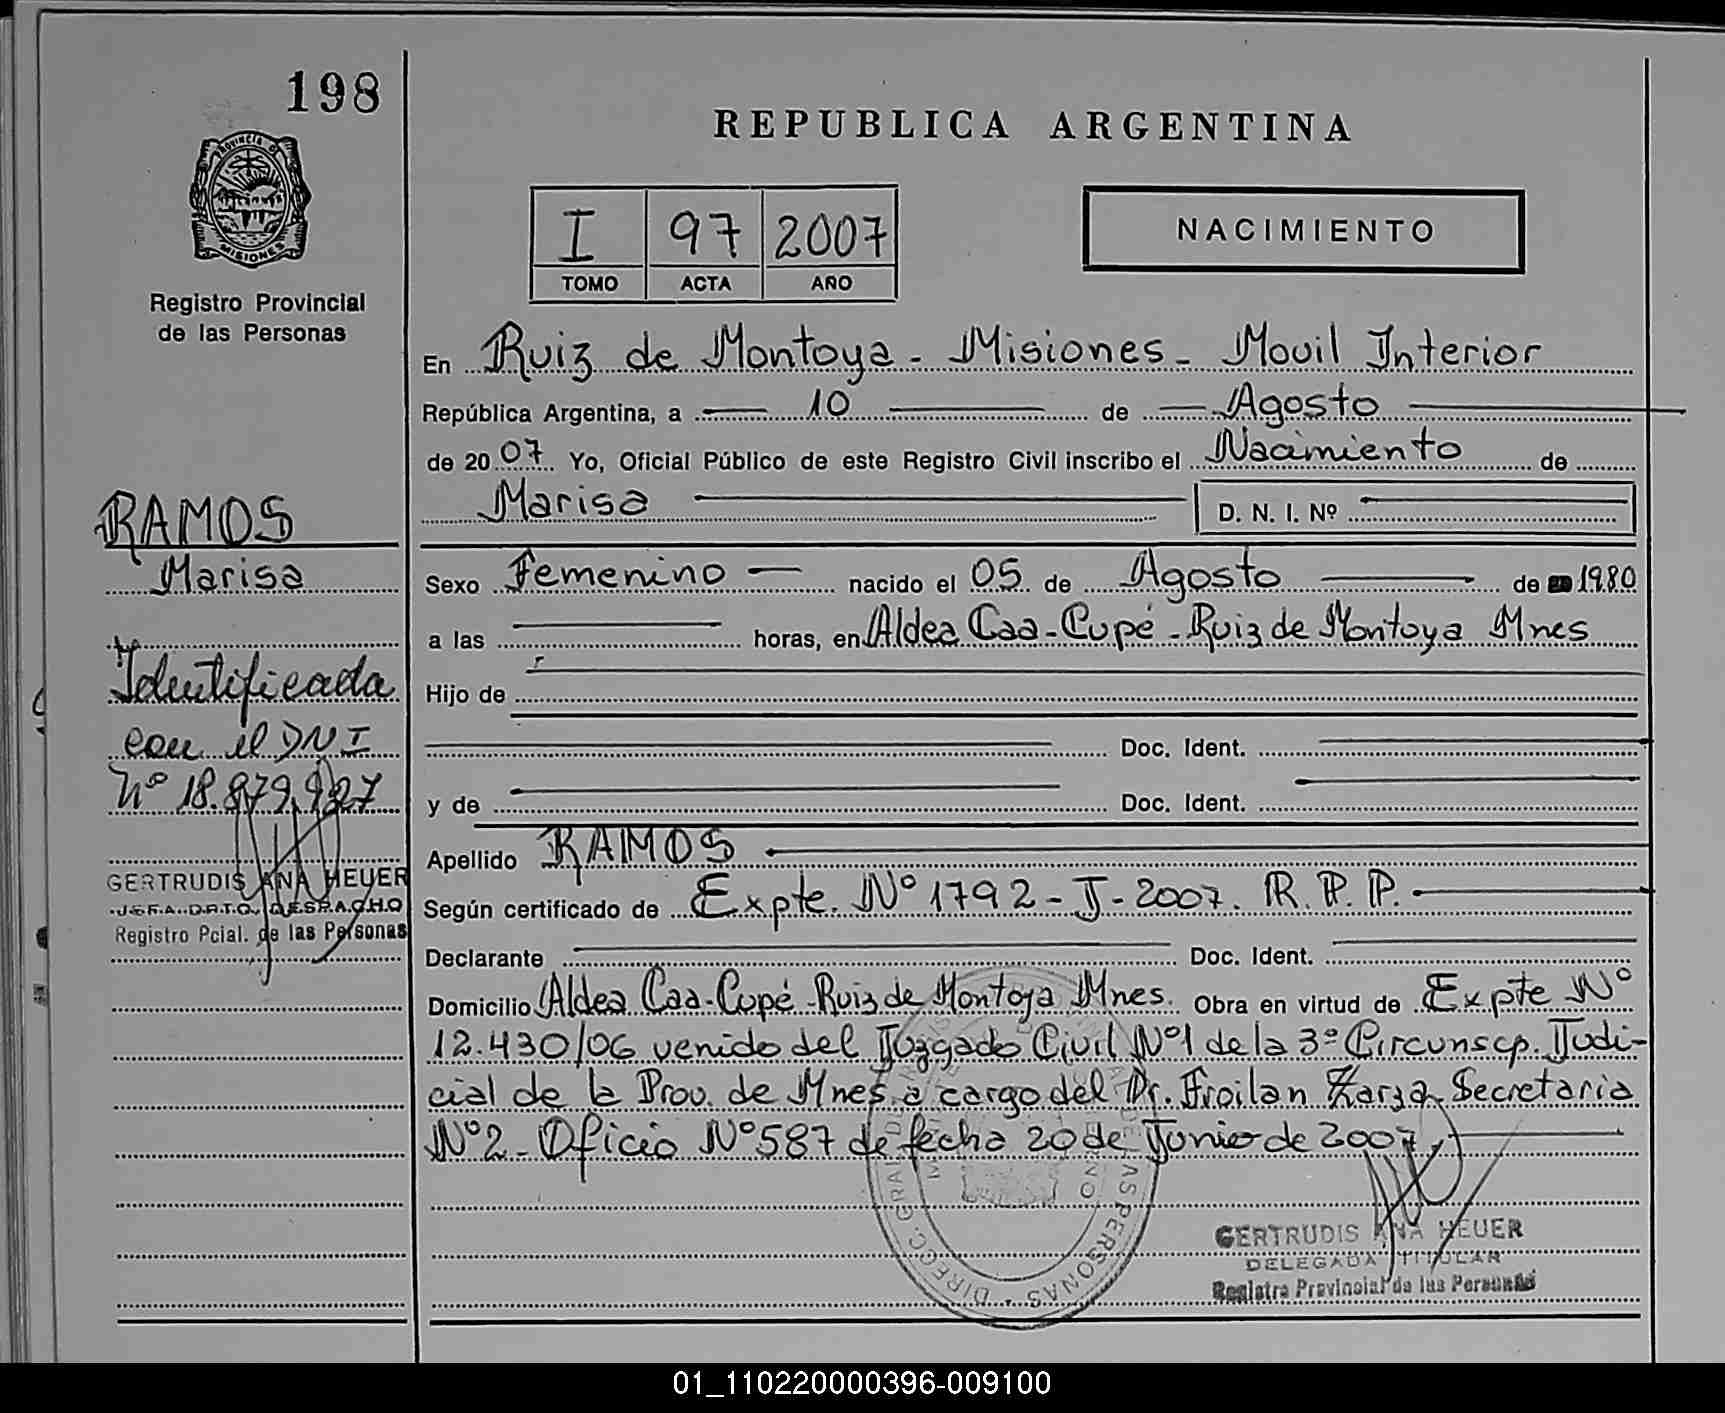 198
PROVINCIA D
MISIONES
Registro Provincial
de las Personas
REPUBLICA ARGENTINA
I 97 2007
TOMO ACTA AÑO
NACIMIENTO
En Ruiz de Montoya - Misiones - Movil Interior
República Argentina, a 10 de Agosto
de 2007 Yo, Oficial Público de este Registro Civil inscribo el Nacimiento de
Marisa D. N. I. Nº
RAMOS
Marisa
Identificada
con el DNI
Nº 18.879.927
GERTRUDIS ANA HEUER
JEFA DPTO. DESPACHO
Registro Pcial. de las Personas
Sexo Femenino nacido el 05 de Agosto de 1980
a las horas, en Aldea Caa-Cupé - Ruiz de Montoya Mnes
Hijo de
Doc. Ident.
y de Doc. Ident.
Apellido RAMOS
Según certificado de Expte. Nº 1792 - J - 2007. R. P. P.
Declarante Doc. Ident.
Domicilio Aldea Caa-Cupé - Ruiz de Montoya Mnes. Obra en virtud de Expte Nº
12.430/06 venido del Juzgado Civil Nº1 de la 3ª Circunscp. Judi-
cial de la Prov. de Mnes a cargo del Dr. Froilan Zarza, Secretaria
Nº2 - Oficio Nº587 de fecha 20 de Junio de 2007,
GERTRUDIS ANA HEUER
DELEGADA TITULAR
Registro Provincial de las Personas
01_110220000396-009100